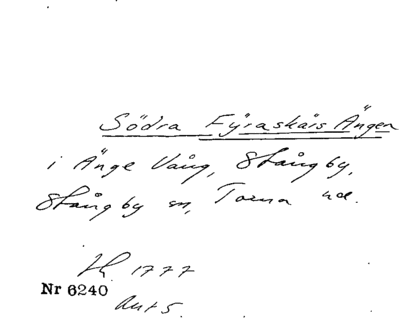 Södra Fyraskärs Ängen
i Änge Vång, Stångby,
Stångby sn, Torna hd.
1777
Nr 6240
Akt 5.